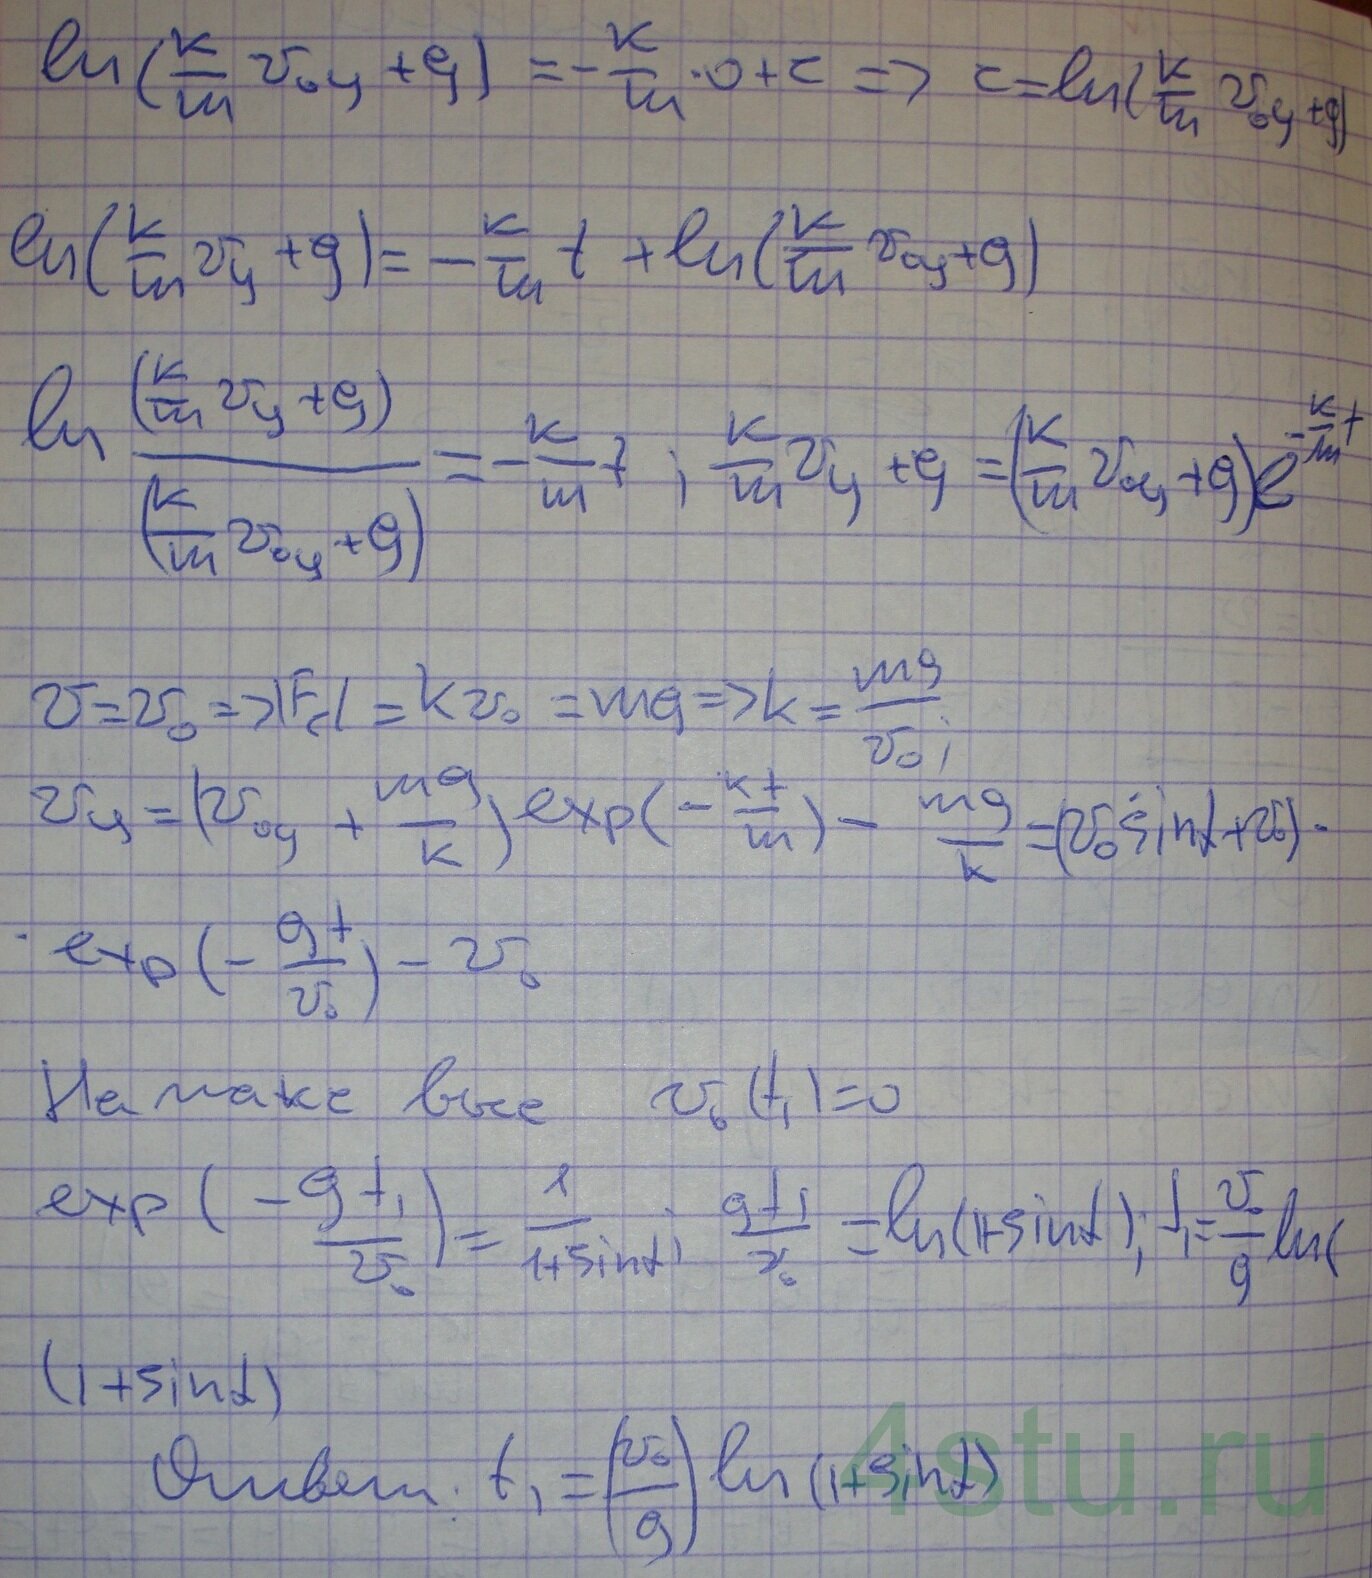 ln(k/m v₀y + g) = -k/m · 0 + c => c = ln(k/m v₀y + g)
ln(k/m vy + g) = -k/m t + ln(k/m v₀y + g)
ln (k/m vy + g)/(k/m v₀y + g) = -k/m t ; k/m vy + g = (k/m v₀y + g) e^(-k/m t)
v = v₀ => |Fc| = kv₀ = mg => k = mg/v₀ ;
vy = (v₀y + mg/k) exp(-kt/m) - mg/k = (v₀ sinα + v₀) ·
· exp(-gt/v₀) - v₀
На макс высе v₀(t₁) = 0
exp(-gt₁/v₀) = 1/(1+sinα) ; gt₁/v₀ = ln(1+sinα) ; t₁ = v₀/g ln(
(1+sinα)
Ответ. t₁ = (v₀/g) ln(1+sinα)
4stu.ru